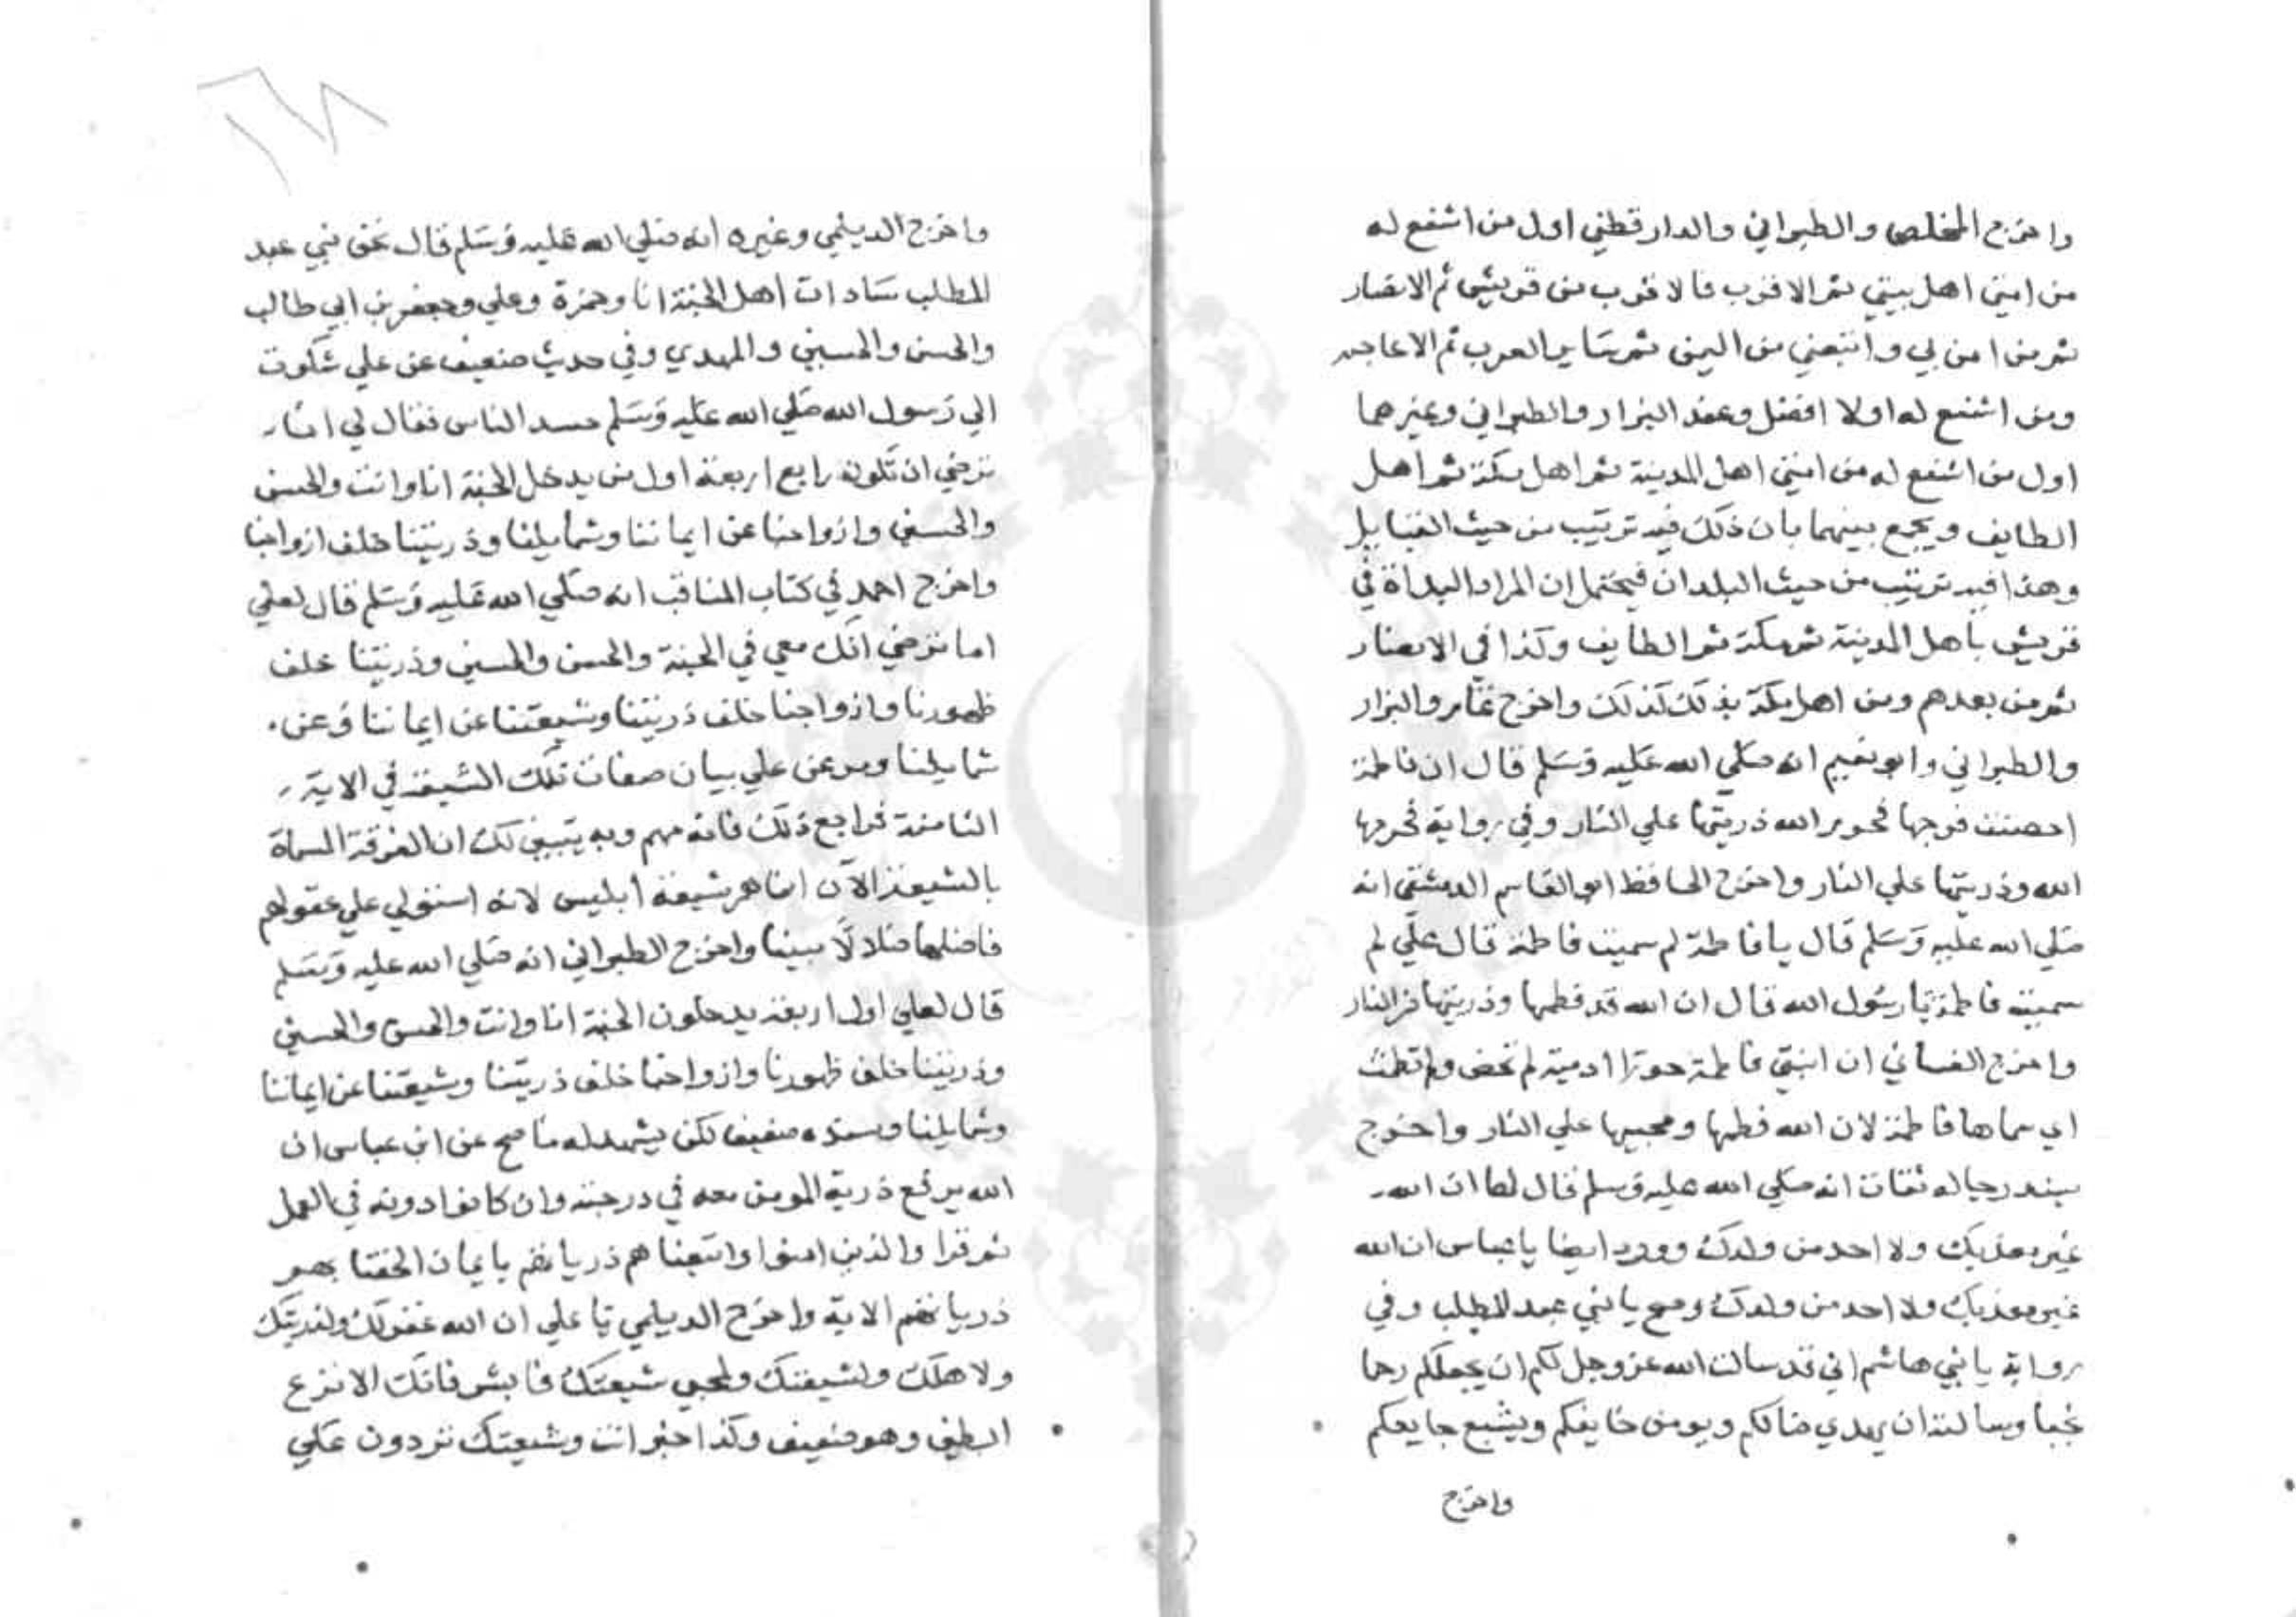 واخرج المخلص والطبراني والدارقطني اول من اشفع له
من امتي اهل بيتي ثم الاقرب فالاقرب من قريش ثم الانصار
ثم من امن بي واتبعني من اليمن ثم ساير العرب ثم الاعاجم
ومن اشفع له اولا افضل وعند البزار والطبراني وغيرهما
اول من اشفع له من امتي اهل المدينة ثم اهل مكة ثم اهل
الطايف ويجمع بينهما بان ذلك فيه ترتيب من حيث القبايل
وهذا فيه ترتيب من حيث البلدان فيحتمل ان المراد البداة في
قريش باهل المدينة ثم مكة ثم الطايف وكذا في الانصار
ثم من بعدهم ومن اهل مكة بذلك كذلك واخرج تمام والبزار
والطبراني وابو نعيم انه صلي الله عليه وسلم قال ان فاطمة
احصنت فرجها فحرم الله ذريتها علي النار وفي رواية فحرمها
الله وذريتها علي النار واخرج الحافظ ابو القاسم الدمشقي انه
صلي الله عليه وسلم قال يا فاطمة لم سميت فاطمة قال علي لم
سميت فاطمة يا رسول الله قال ان الله قد فطمها وذريتها من النار
واخرج النساي ان ابنتي فاطمة حورا ادمية لم تحض ولم تطمث
اي سماها فاطمة لان الله فطمها ومحبيها علي النار واخرج
بسند رجاله ثقات انه صلي الله عليه وسلم قال لها ان الله
غير معذبك ولا احد من ولدك وورد ايضا يا عباس ان الله
غير معذبك ولا احد من ولدك وصح يا بني عبد المطلب وفي
رواية يا بني هاشم اني قد سالت الله عز وجل لكم ان يجعلكم رحما
نجبا وسالته ان يهدي ضالكم ويومن خايفكم ويشبع جايعكم
واخرج
١٦٨
واخرج الديلمي وغيره انه صلي الله عليه وسلم قال نحن بني عبد
المطلب سادات اهل الجنة انا وحمزة وعلي وجعفر بن ابي طالب
والحسن والحسين والمهدي وفي حديث ضعيف عن علي شكوت
الي رسول الله صلي الله عليه وسلم حسد الناس فقال لي اما
ترضي ان تكون رابع اربعة اول من يدخل الجنة انا وانت والحسن
والحسين وازواجنا عن ايماننا وشمايلنا وذريتنا خلف ازواجنا
واخرج احمد في كتاب المناقب انه صلي الله عليه وسلم قال لعلي
اما ترضي انك معي في الجنة والحسن والحسين وذريتنا خلف
ظهورنا وازواجنا خلف ذريتنا وشيعتنا عن ايماننا وعن
شمايلنا ومر عن علي بيان صفات تلك الشيعة في الاية
الثامنة فراجع ذلك فانه مهم وبه يتبين لك ان الفرقة المسماة
بالشيعة الآن انما هم شيعة ابليس لانه استولي علي عقولهم
فاضلها ضلالا مبينا واخرج الطبراني انه صلي الله عليه وسلم
قال لعلي اول اربعة يدخلون الجنة انا وانت والحسن والحسين
وذريتنا خلف ظهورنا وازواجنا خلف ذريتنا وشيعتنا عن ايماننا
وشمايلنا وسنده ضعيف لكن يشهد له ما صح عن ابن عباس ان
الله يرفع ذرية المومن معه في درجته وان كانوا دونه في العمل
ثم قرا والذين امنوا واتبعناهم ذرياتهم بايمان الحقنا بهم
ذرياتهم الاية واخرج الديلمي يا علي ان الله غفر لك ولذريتك
ولاهلك ولشيعتك ولمحبي شيعتك فابشر فانك الانزع
البطين وهو ضعيف وكذا خبر انت وشيعتك تردون علي